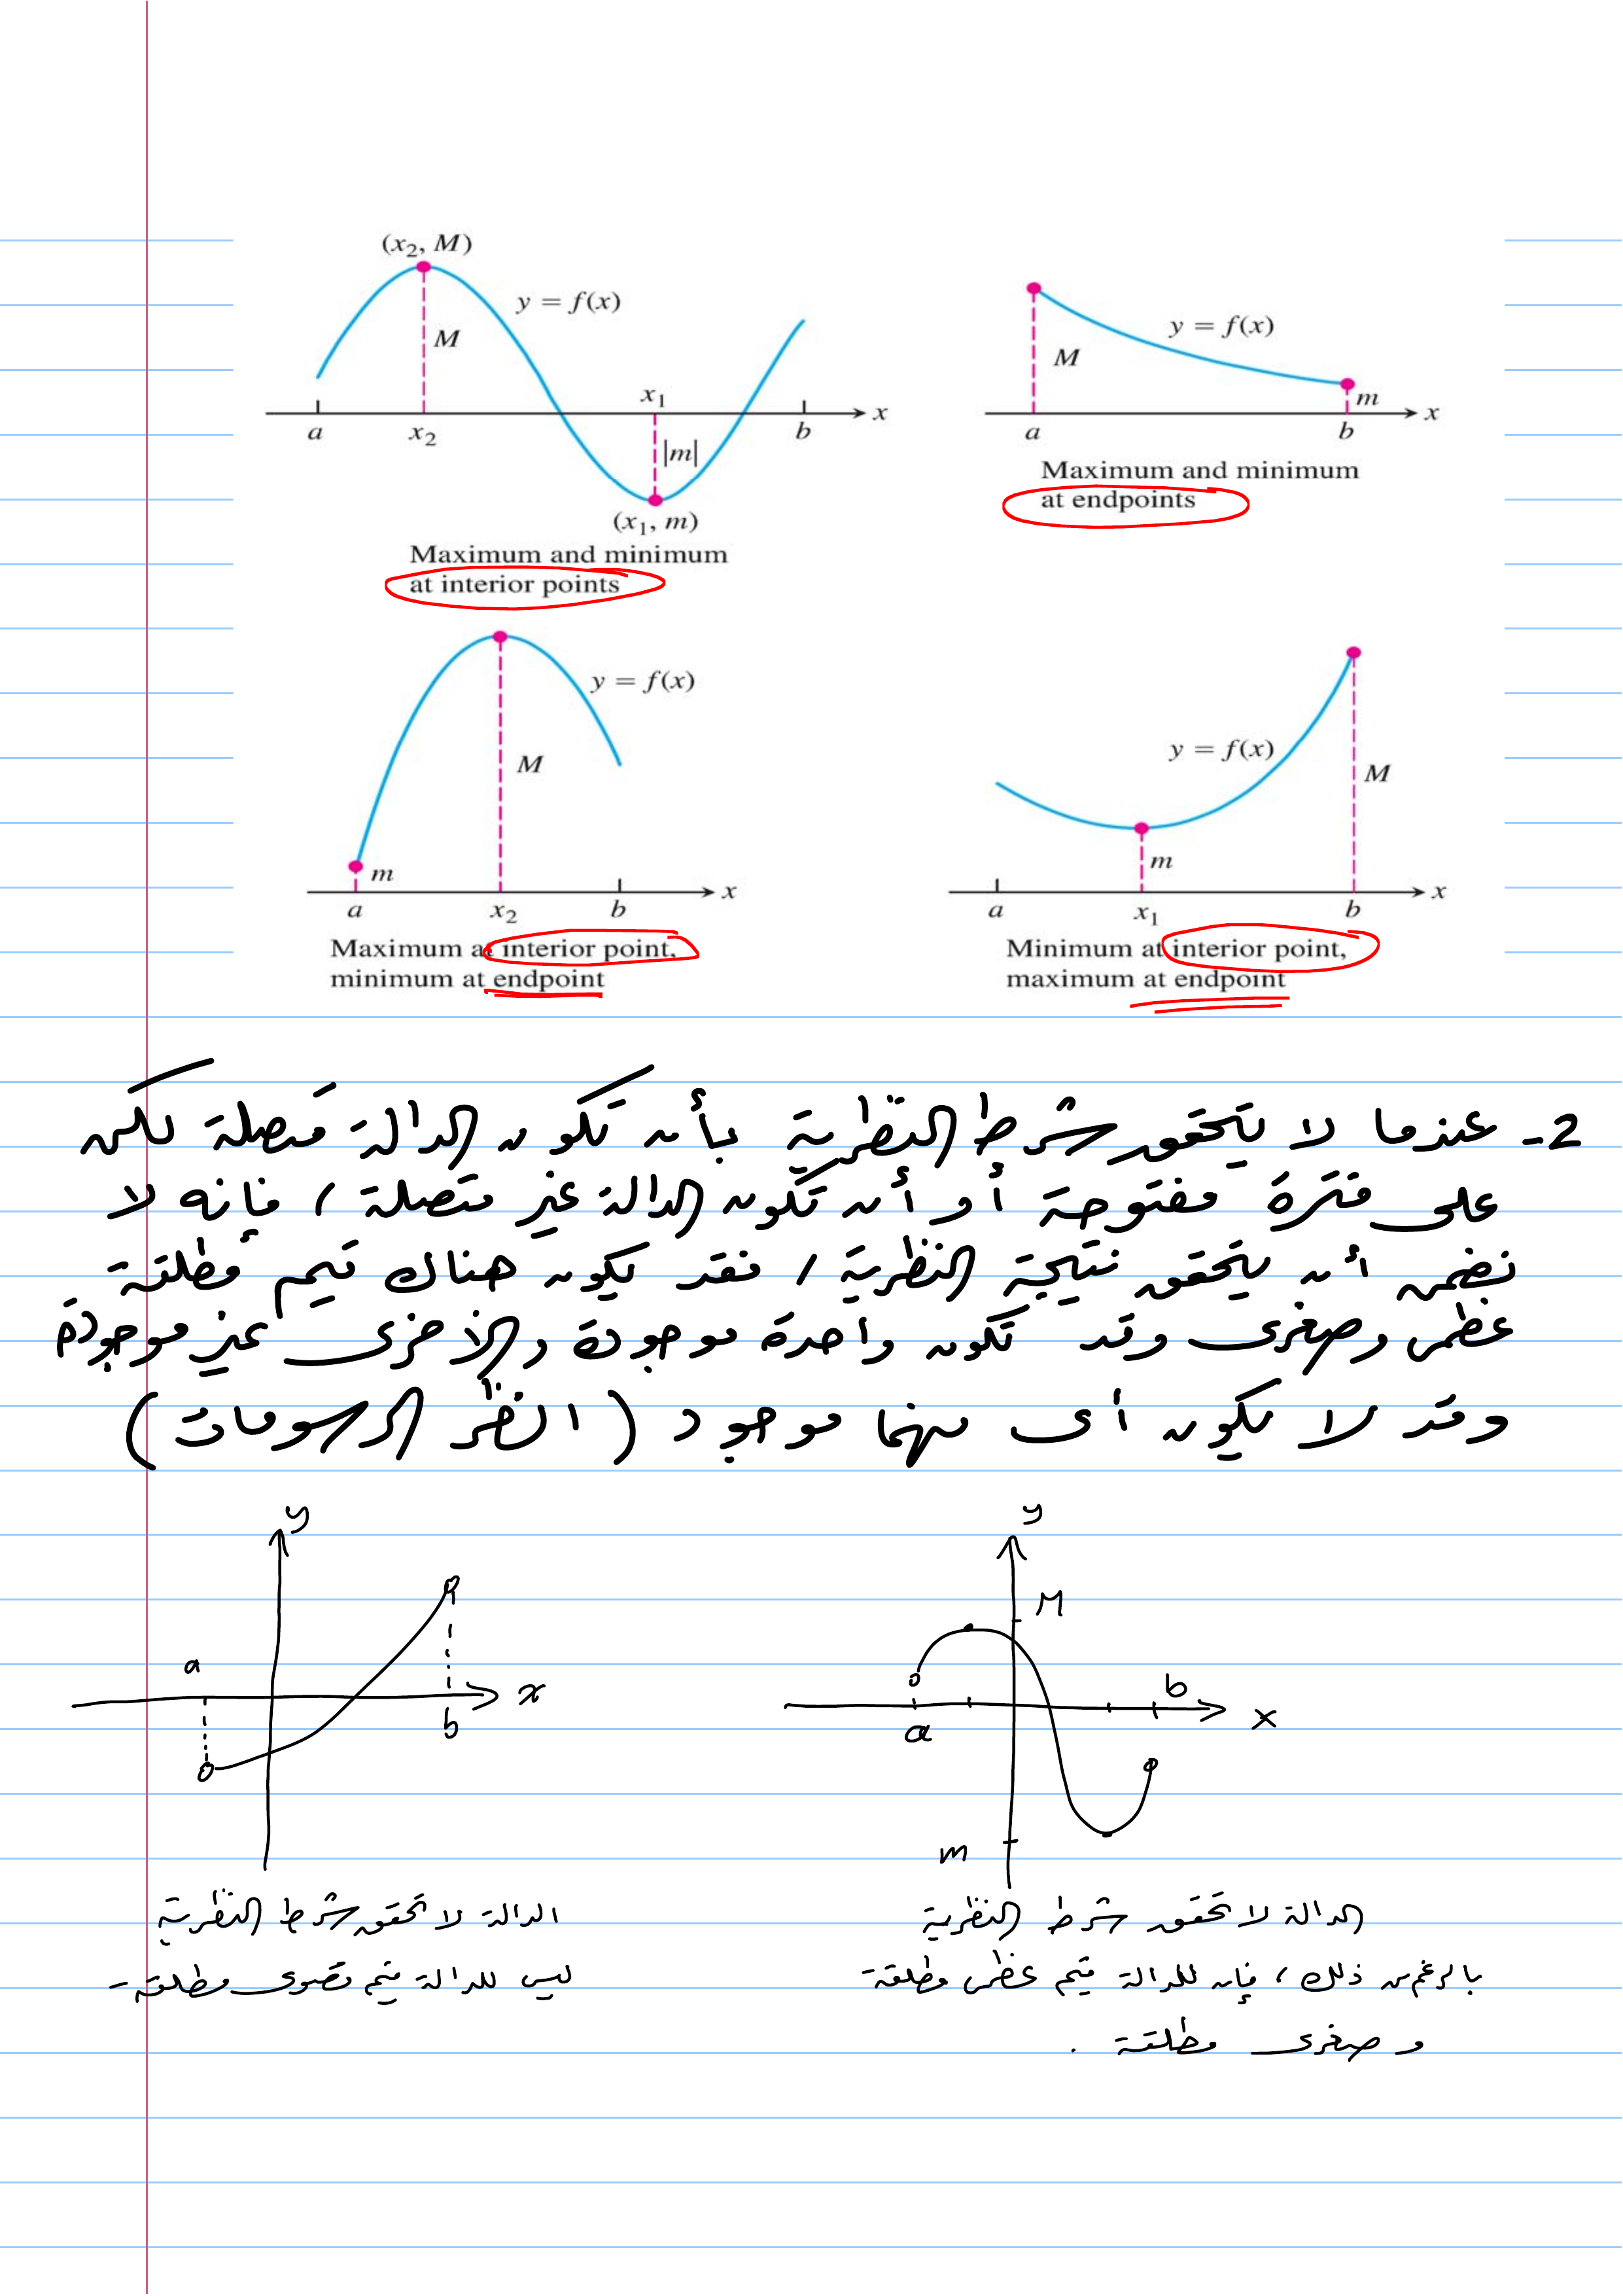 (x₂, M)
y = f(x)
M
x₁
a
x₂
b
x
|m|
(x₁, m)
Maximum and minimum
at interior points
y = f(x)
M
m
x
a
b
Maximum and minimum
at endpoints
y = f(x)
M
m
x
a
x₂
b
Maximum at interior point,
minimum at endpoint
y = f(x)
M
m
x
a
x₁
b
Minimum at interior point,
maximum at endpoint
2- عندما لا يتحقق شرط النظرية بأن تكون الدالة متصلة لكن
على فترة مفتوحة أو أن تكون الدالة غير متصلة، فإنه لا
نضمن أن يتحقق نتيجة النظرية، فقد يكون هناك قيم مطلقة
عظمى وصغرى وقد تكون واحدة موجودة والأخرى غير موجودة
وقد لا يكون أى منهما موجود (انظر الرسومات)
y
M
a
b
x
m
الدالة لا تحقق شرط النظرية
بالرغم من ذلك، فإن للدالة قيم عظمى مطلقة
وصغرى مطلقة .
y
a
x
b
الدالة لا تحقق شرط النظرية
ليس للدالة قيم قصوى مطلقة